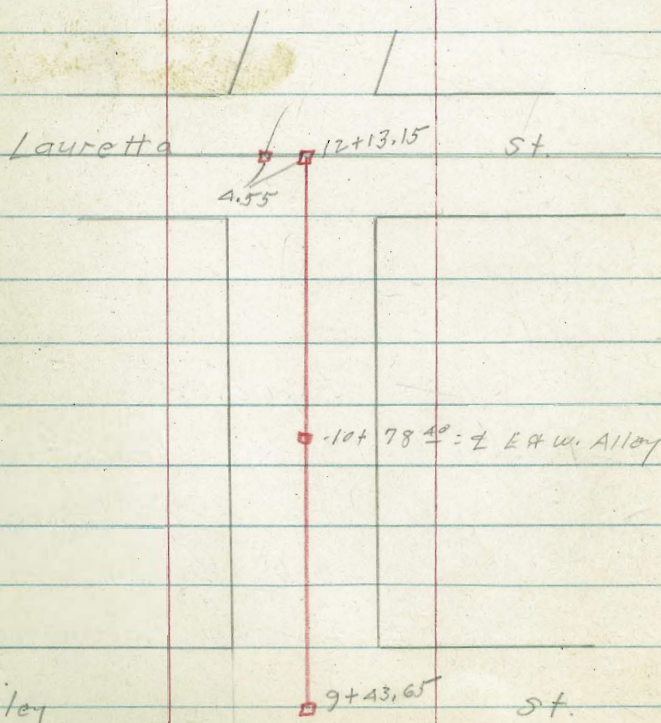 Lauretta 12+13.15 St.
4.55
10+78 40 = ℄ E & W. Alley
ley 9+43.65 St.